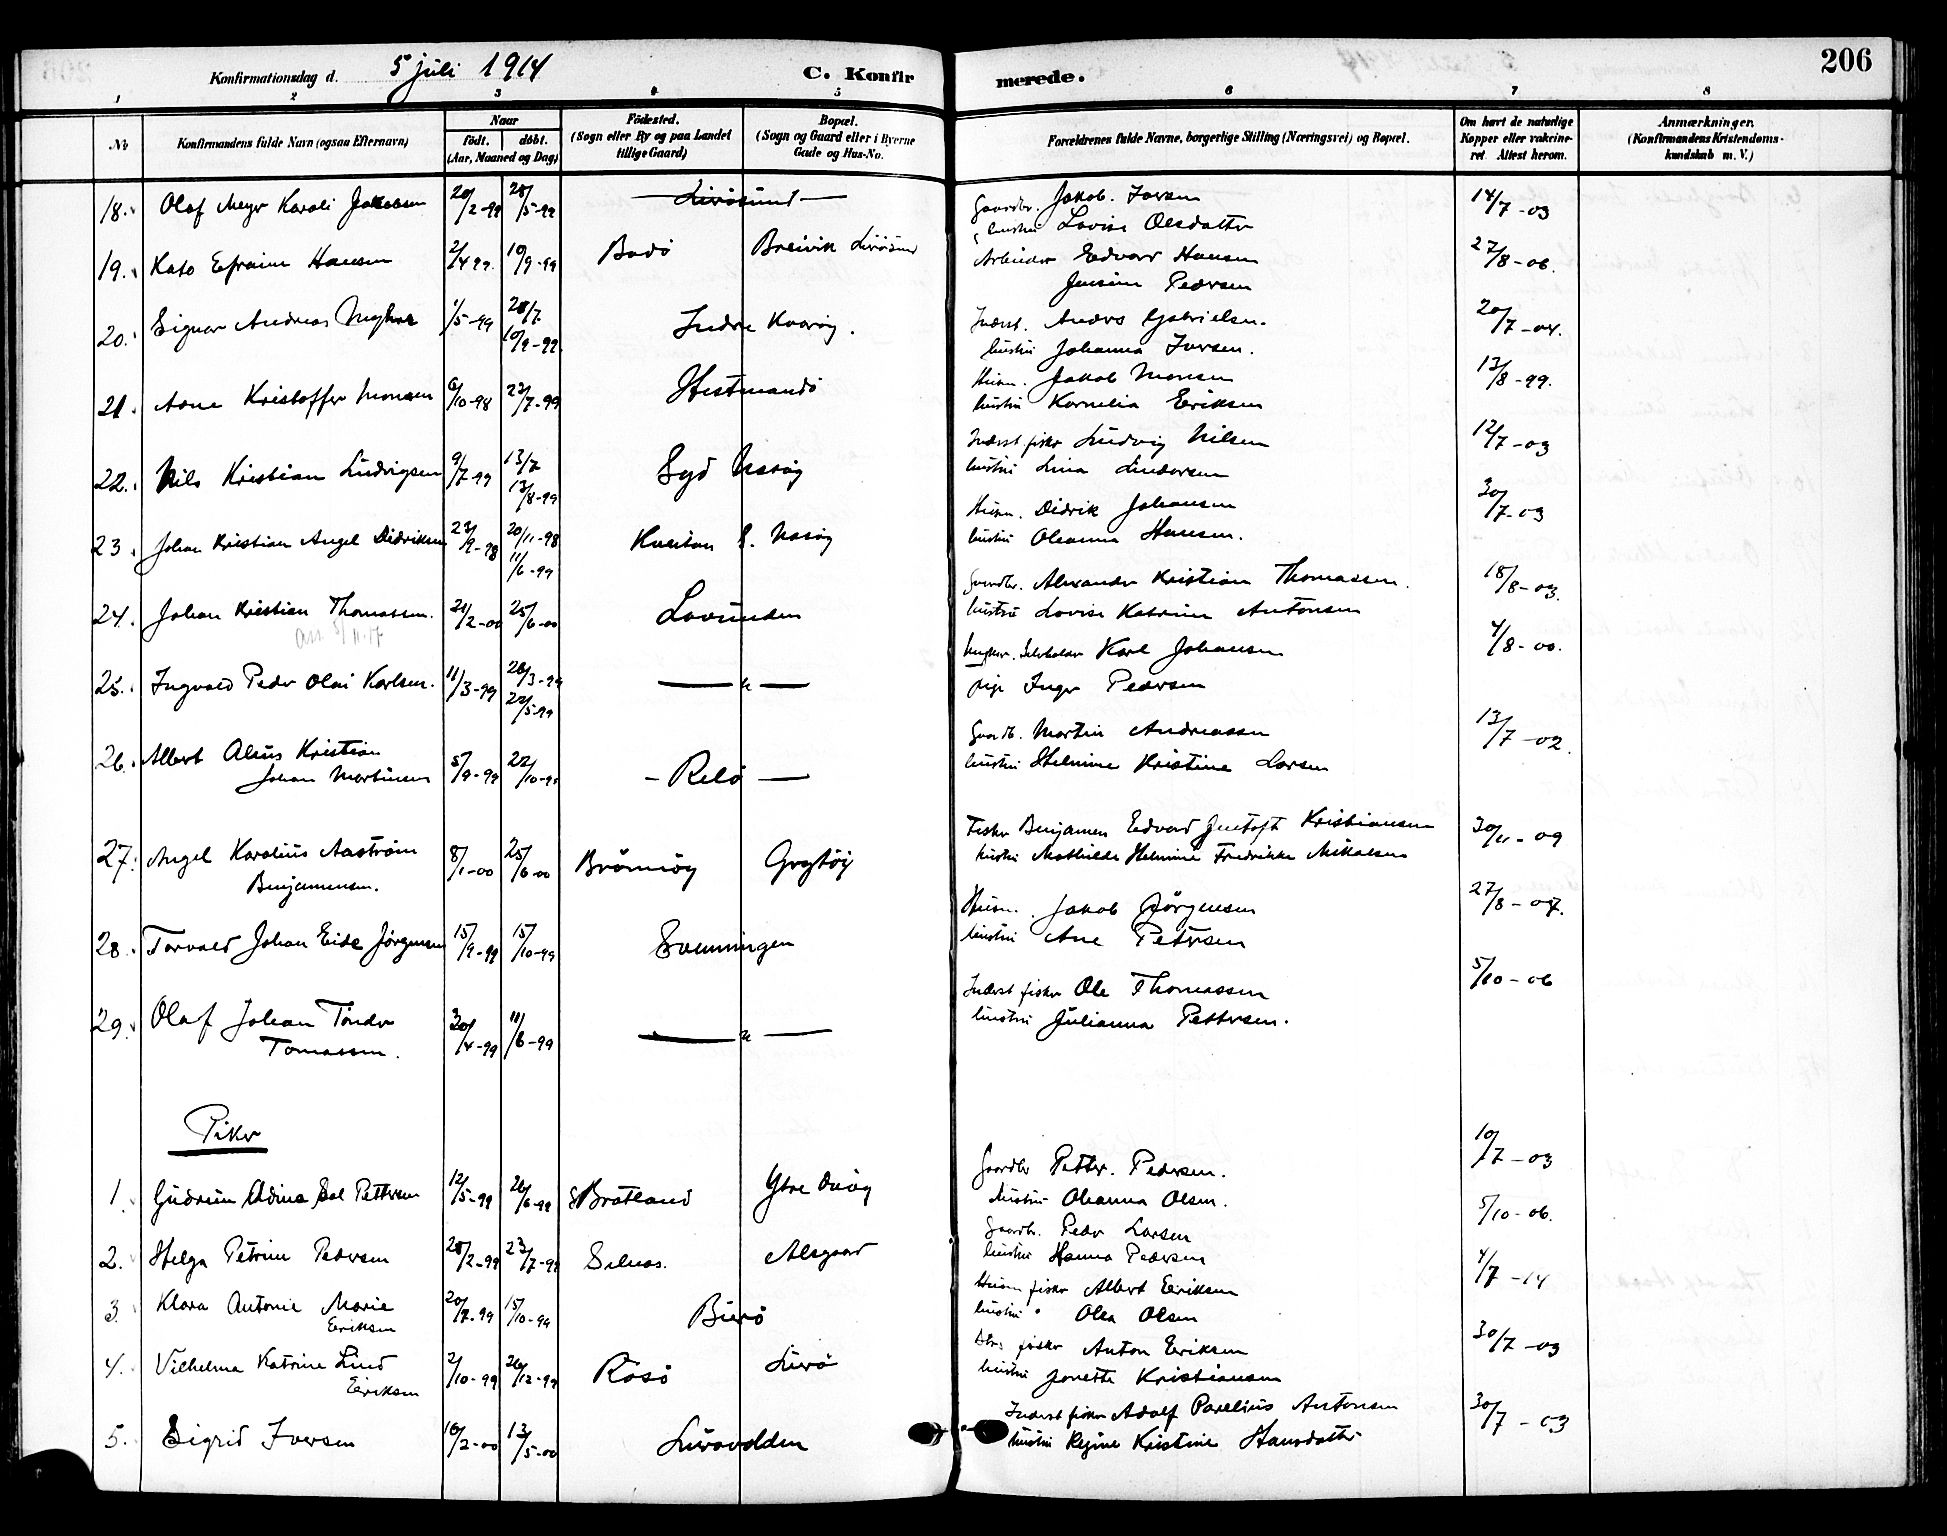 206
Konfirmationsdag d. 5 juli 1914 C. Konfirmerede.
1 2 3 4 5 6 7 8
No Konfirmandens fulde Navn (ogsaa Efternavn) Naar født. døbt. (Aar, Maaned og Dag) Fødested. (Sogn eller By og paa Landet tillige Gaard) Bopæl. (Sogn og Gaard eller i Byerne Gade og Hus-No. Forældrenes fulde Navne, borgerlige Stilling (Næringsvei) og Bopæl. Om havt de naturlige Kopper eller vakcineret Attest herom. Anmærkninger. (Konfirmandens Kristendomskundskab m. V.)
18. Olaf Meyer Karoli Jakobsen 20/2-99 28/5-99 Lurösund Gaardbr. Jakob Iversen 14/7-03
hustru Lovise Olsdatter
19. Kato Efraim Hansen 2/4 99. 10/9-99 Bodö Breivik Lurösund Arbeider Edvard Hansen 27/8-06.
Jensine Pedersen
20. Signar Andreas 1/5-99 28/7 10/9-99. Indre Kvarøy. Inderst. Anders Gabrielsen. 20/7-04.
hustru Johanna Iversen.
21. Arne Kristoffer Monsen 6/10-98 23/7-99 Hestmandö Husm. Jakob Monsen 13/8-99.
hustru Kornelia Eriksen
22. Nils Kristian Ludvigsen 9/7-99 13/7 13/8-99 Syd Nasöy Inderst fisker Ludvig Nilsen 12/7-03
hustru Lina Andersen
23. Johan Kristian Angel Didriksen 23/9-98 20/11-98 11/6-99 Kveitan S. Nasöy Husm. Didrik Johansen 30/7-03
hustru Oleanna Hansen.
24. Johan Kristian Thomassen. 21/2-00 25/6-00 Lovunden Gaardbr. Alexander Kristian Thomassen. 18/8-03.
hustru Lovise Katrine Antonsen
25. Ingvald Peder Olai Karlsen. 11/3-99 26/3-99 22/5-99 — " — Ungkar. Karl Johansen 4/8-00.
pige Inger Pedersen
26. Albert Alsius Kristian 5/9-99 22/10-99 — Relö — Gaardb. Martin Andreassen 13/7-02.
Johan Martinsen hustru Helmine Kristine Larsen
27. Angel Karolius Aaström 8/1-00 25/6-00 Brönnöy Grytöy Fisker Benjamin Edvard Gustoft Kristiansen 30/11-09
Benjaminsen. hustru Mathilde Helmine Fredrikke Mikalsen
28. Torvald Johan Eide Jörgensen 15/9-99 15/10-99 Svenningen Husm. Jakob Jörgensen 27/8-07.
hustru Ane Petersen
29. Olaf Johan Tönder 30/4-99 11/6-99 — " — Inderst fisker Ole Thomassen 5/10-06
Tomassen. hustru Julianna Pettersen.
Piker
1. Gudrun Adina Sol Pettersen 12/5-99 26/6-99 Bratland Ytre Gaardbr Petter. Pedersen. 10/7-03
hustru Oleanna Olsen.
2. Helga Petrine Pedersen 28/2-99 23/7-99 Selnes. Alsgaard Gaardbr. Peder Larsen 5/10-06.
hustru Hanna Pedersen
3. Klara Antonie Marie 20/7-99 15/10-99 Burö Husm fisker Albert Eriksen 4/7-14
Eriksen hustru Olea Olsen
4. Vilhelma Katrine Lind 2/10-99 26/12-99 Rösö Lurö fisker Anton Eriksen 30/7-03
Eriksen hustru Jonette Kristiansen
5. Sigrid Iversen 10/2-00 13/5-00 Lurövolden Inderst fisker Adolf Parelius Antonsen 30/7-03
hustru Regine Kristine Hansdatter